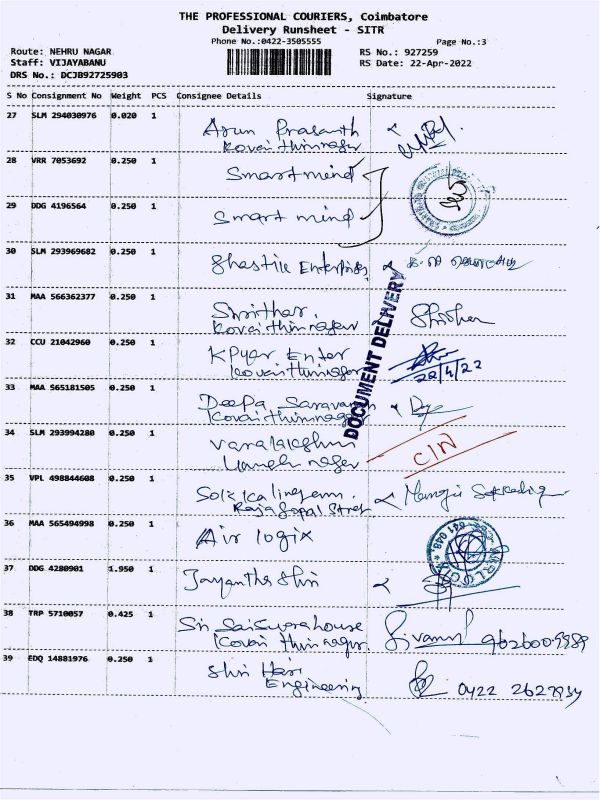 THE PROFESSIONAL COURIERS, Coimbatore
Delivery Runsheet - SITR
Phone No.:0422-3505555 Page No.:3
Route: NEHRU NAGAR RS No.: 927259
Staff: VIJAYABANU RS Date: 22-Apr-2022
DRS No.: DCJB92725903
S No Consignment No Weight PCS Consignee Details Signature
27 SLM 294030976 0.020 1 Arun Prasanth
Kovai thirunagar
28 VRR 7053692 0.250 1 Smart mind
29 DDG 4196564 0.250 1 Smart mind
30 SLM 293969682 0.250 1 Shastik Enterprises
31 MAA 566362377 0.250 1 Shrithar.
Kovai thirunagar
DOCUMENT DELIVERY
32 CCU 21042960 0.250 1 Enter
Kovai thirunagar 22/4/22
33 MAA 565181505 0.250 1 Deepa Saravanan
Kovai thirunagar
34 SLM 293994280 0.250 1 Varalakshmi C/N
nagar
35 VPL 498844608 0.250 1
Rajagopal Street
36 MAA 565494998 0.250 1 Air logix
37 DDG 4280901 1.950 1 Jayantha Shri
38 TRP 5710057 0.425 1 Sri
Kovai thirunagar
39 EDQ 14881976 0.250 1 Shri Hari
Engineering 0422